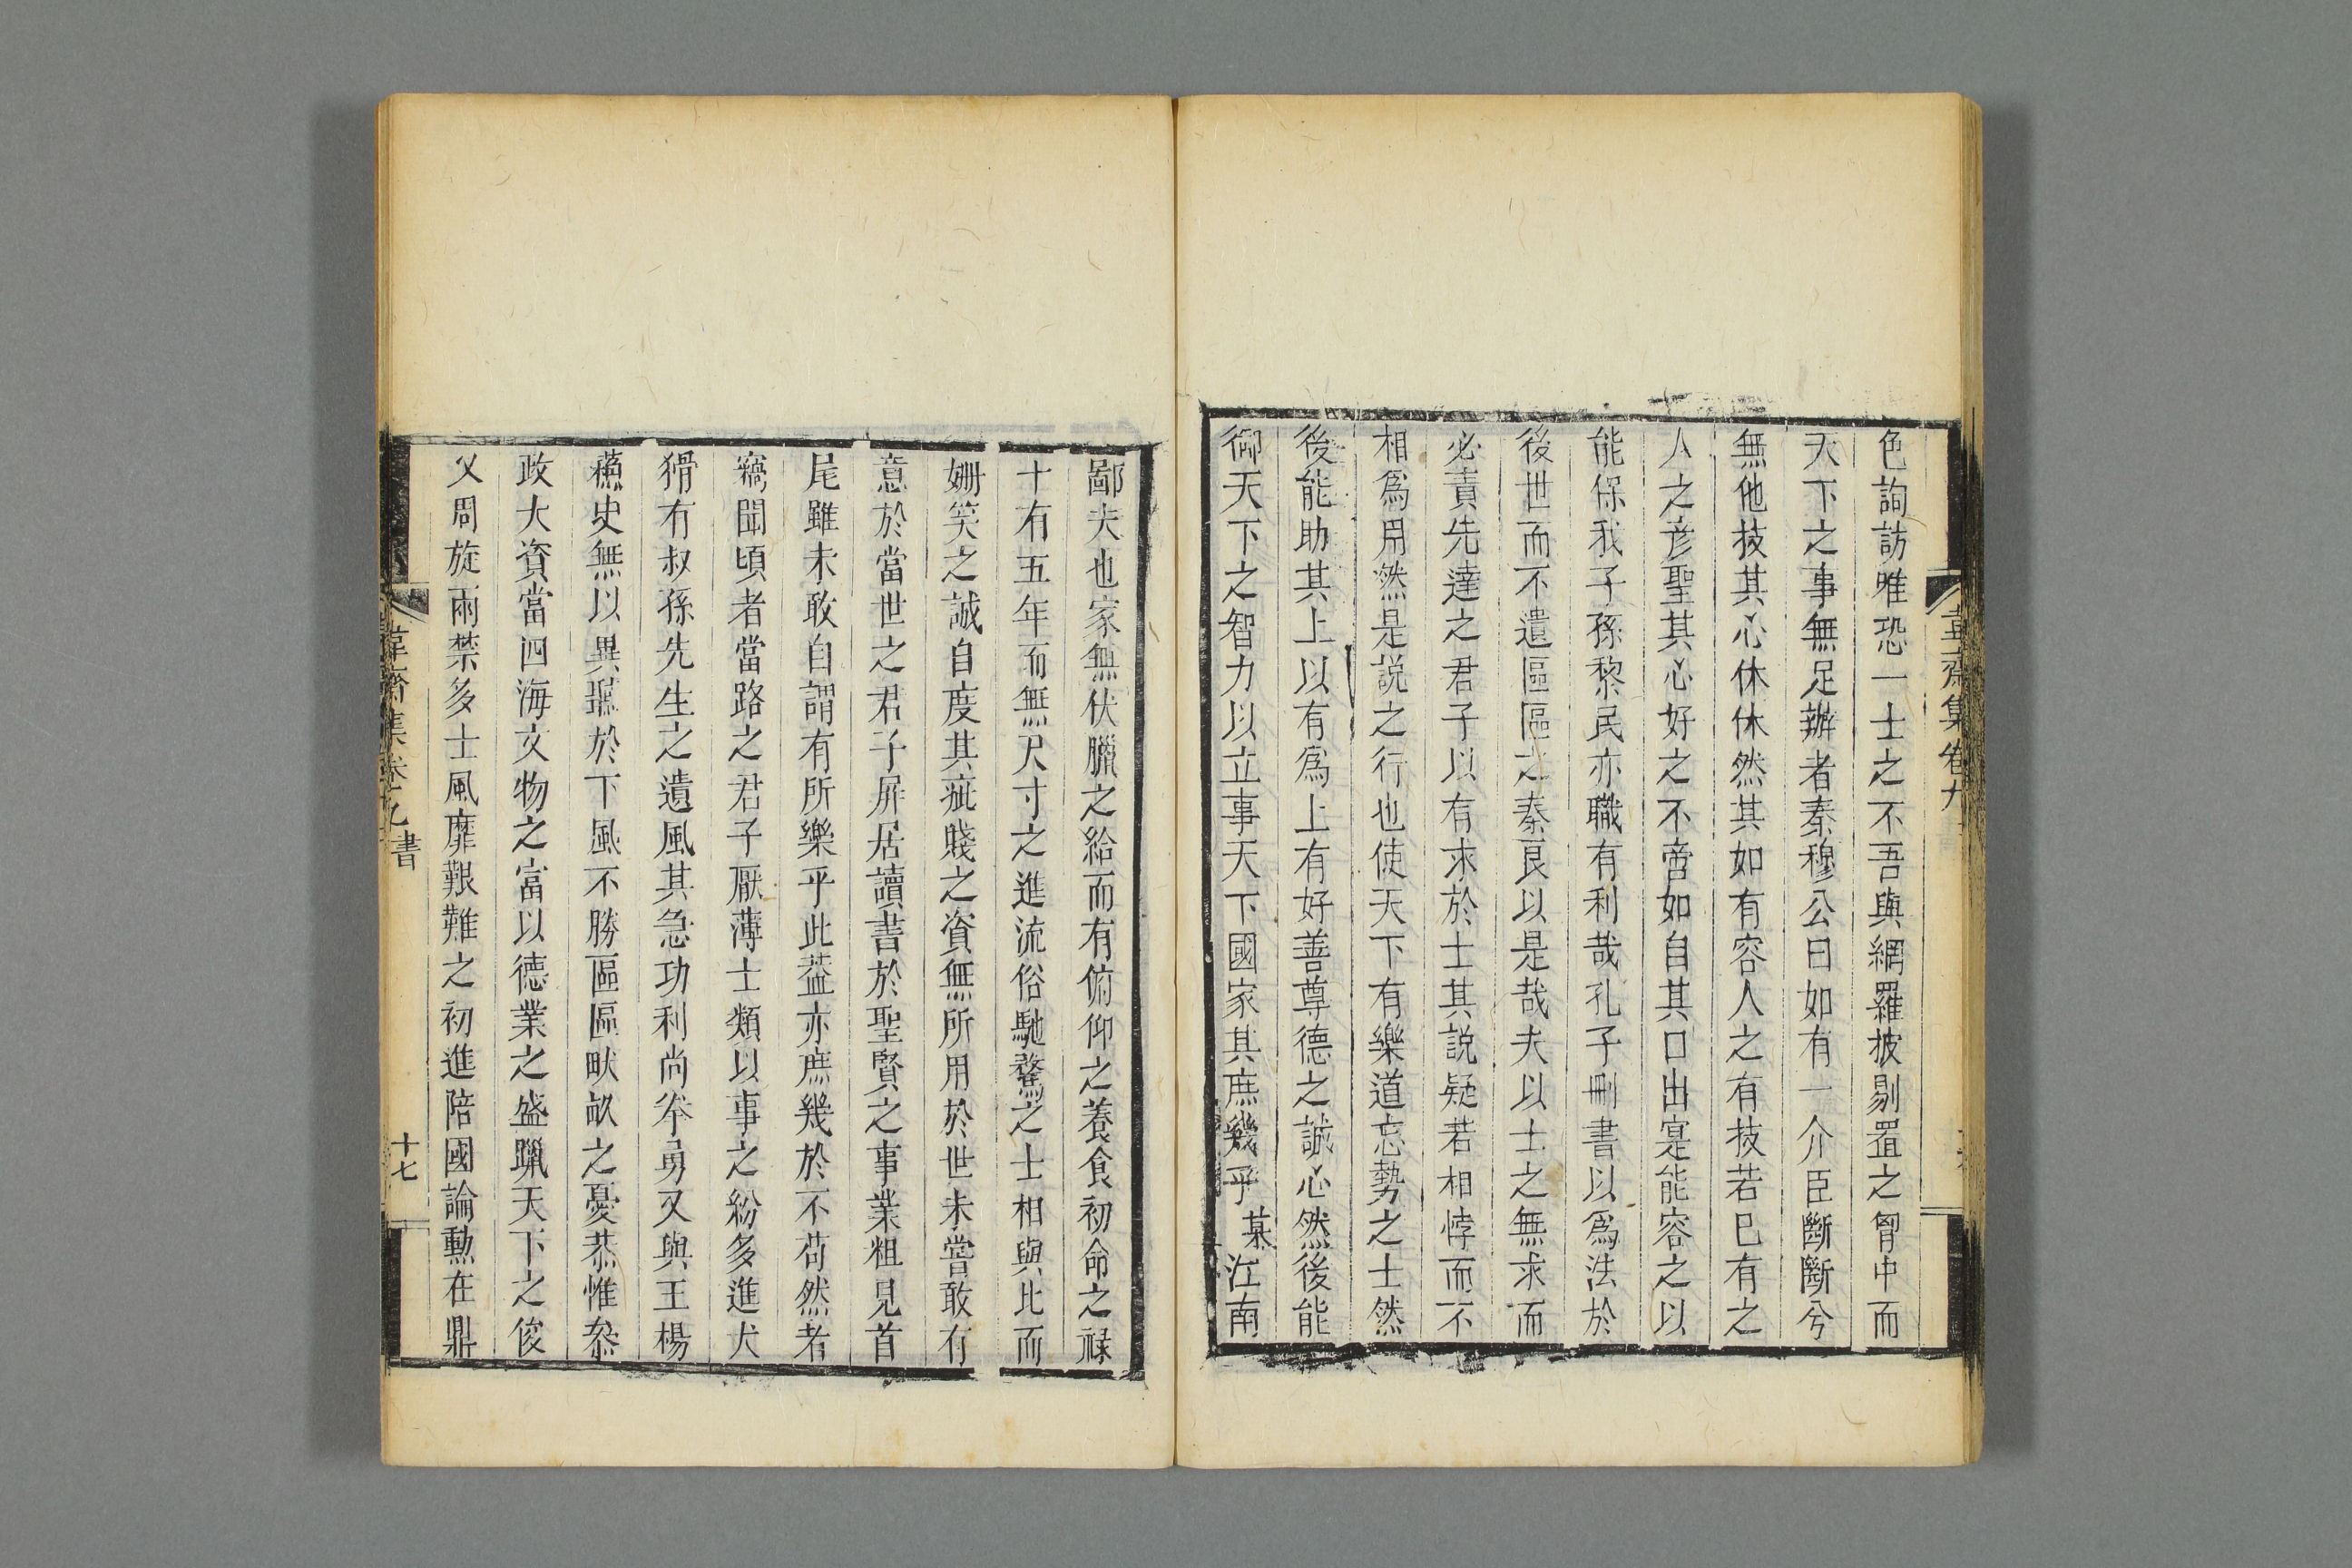 色詢訪雅恐一士之不吾與網羅披剔置之胷中而
天下之事無足辦者秦穆公曰如有一介臣斷斷兮
無他技其心休休然其如有容人之有技若已有之
人之彥聖其心好之不啻如自其口出寔能容之以
能保我子孫黎民亦職有利哉孔子刪書以爲法於
後世而不遺區區之秦良以是哉夫以士之無求而
必責先達之君子以有求於士其説疑若相悖而不
相爲用然是説之行也使天下有樂道忘勢之士然
後能助其上以有爲上有好善尊德之誠心然後能
御天下之智力以立事天下國家其庶幾乎某江南
鄙夫也家無伏臘之給而有俯仰之養食初命之祿
十有五年而無尺寸之進流俗馳騖之士相與比而
姍笑之誠自度其疵賤之資無所用於世未嘗敢有
意於當世之君子屏居讀書於聖賢之事業粗見首
尾雖未敢自謂有所樂乎此葢亦庶幾於不苟然者
竊聞頃者當路之君子厭薄士類以事之紛多進犬
猾有叔孫先生之遺風其急功利尚拳勇又與王楊
蕉史無以異聽於下風不勝區區畎畝之憂恭惟叅
政大資當四海文物之富以德業之盛躐天下之俊
又周旋兩禁多士風靡艱難之初進陪國論勳在鼎
韋齋集卷九 書
十七
韋齋集卷九